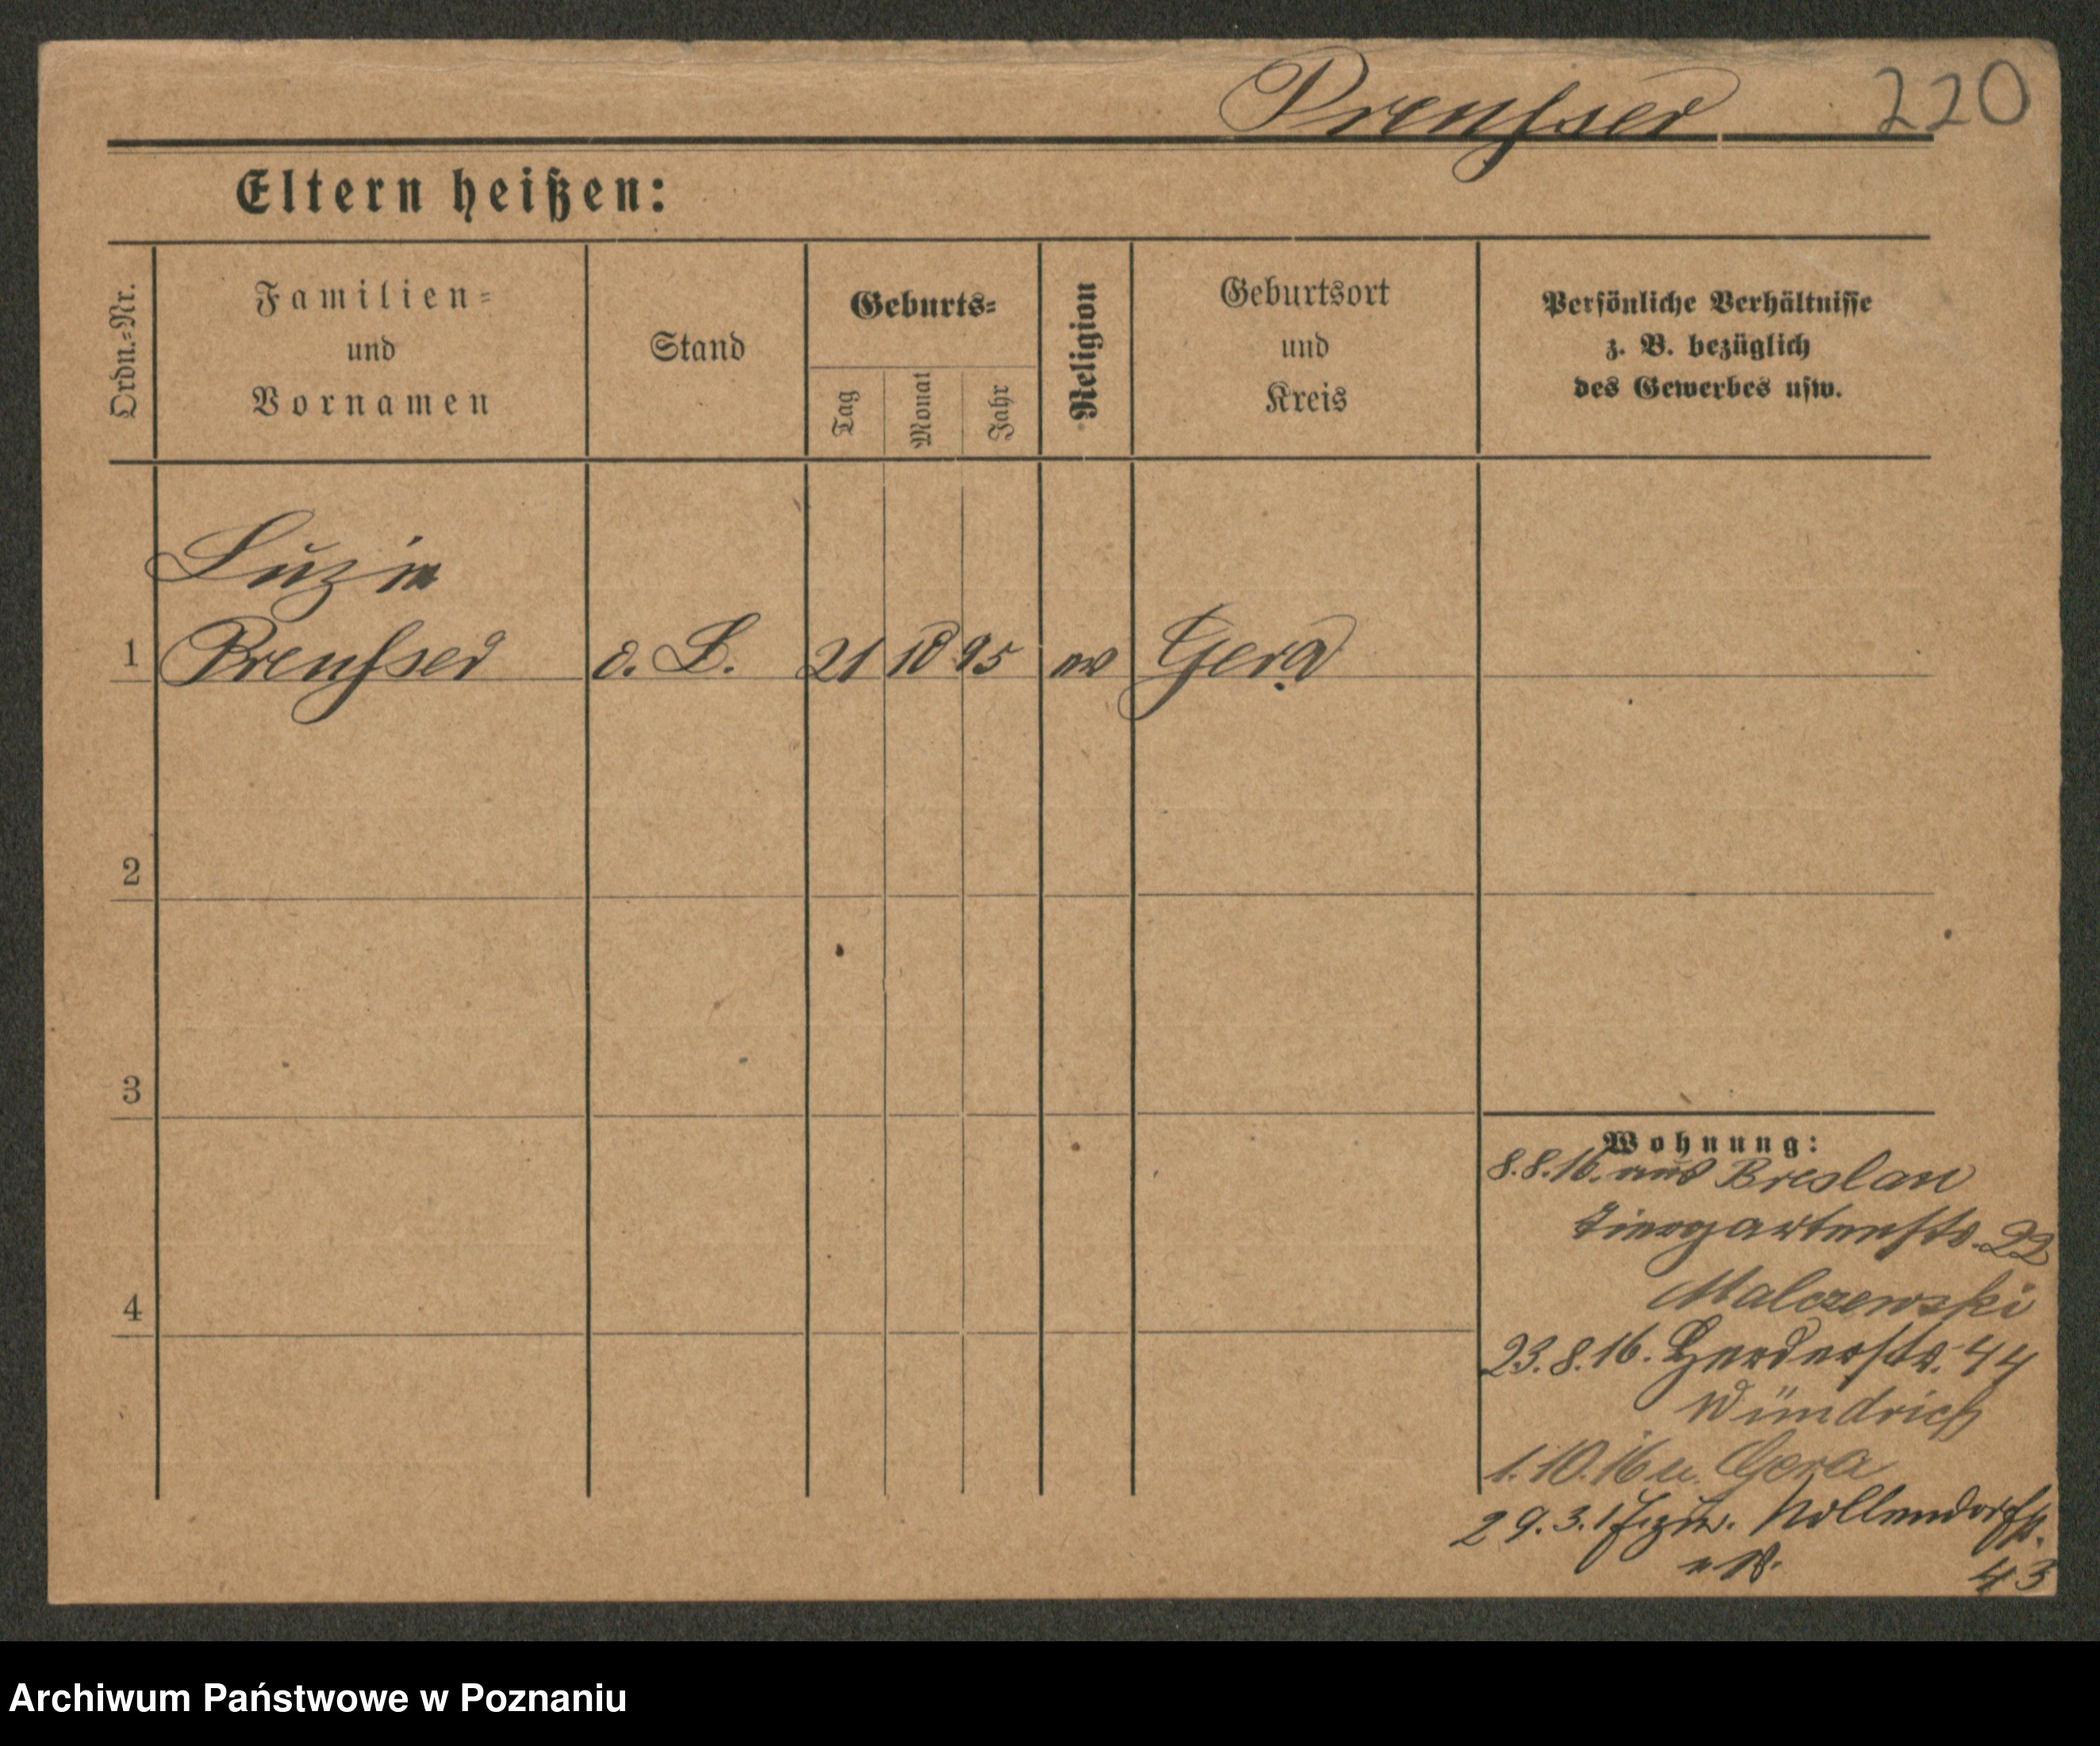 Preußser 220
Eltern heißen:
Ordn.-Nr.
Familien-
und
Vornamen
Stand
Geburts-
Tag
Monat
Jahr
Religion
Geburtsort
und
Kreis
Persönliche Verhältnisse
z. B. bezüglich
des Gewerbes usw.
Luzie
1 Preußser 21 10 95 ev Gera
2
3
4
Wohnung:
8.8.16. aus Breslau
Tiergartenstr. 22
Malczewski
23.8.16. Herderstr. 44
Wündrich
1.10.16 u. Gera
29.3.17 Nollendorfst.
43
Archiwum Państwowe w Poznaniu